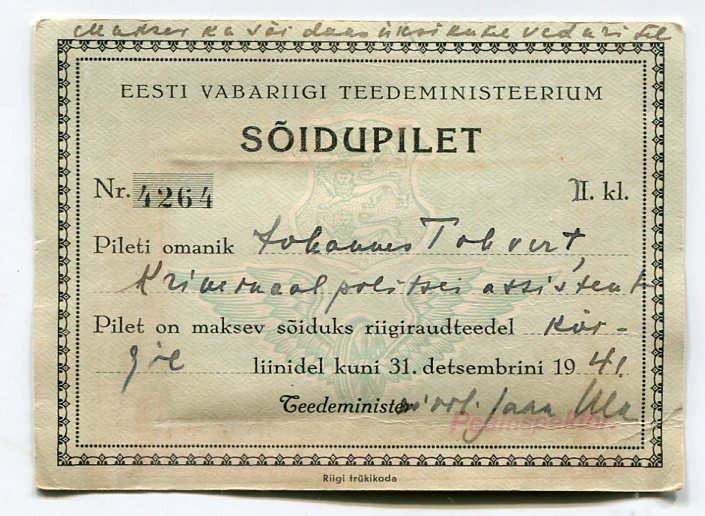 Maksev ka sõiduks üksikutel veduritel
EESTI VABARIIGI TEEDEMINISTEERIUM
SÕIDUPILET
Nr. 4264 II. kl.
Pileti omanik Johannes Tohvert,
Kriminaalpolitsei assistent
Pilet on maksev sõiduks riigiraudteedel kõi-
gil liinidel kuni 31. detsembrini 1941.
Teedeminister
Peainspektor.
Riigi trükikoda